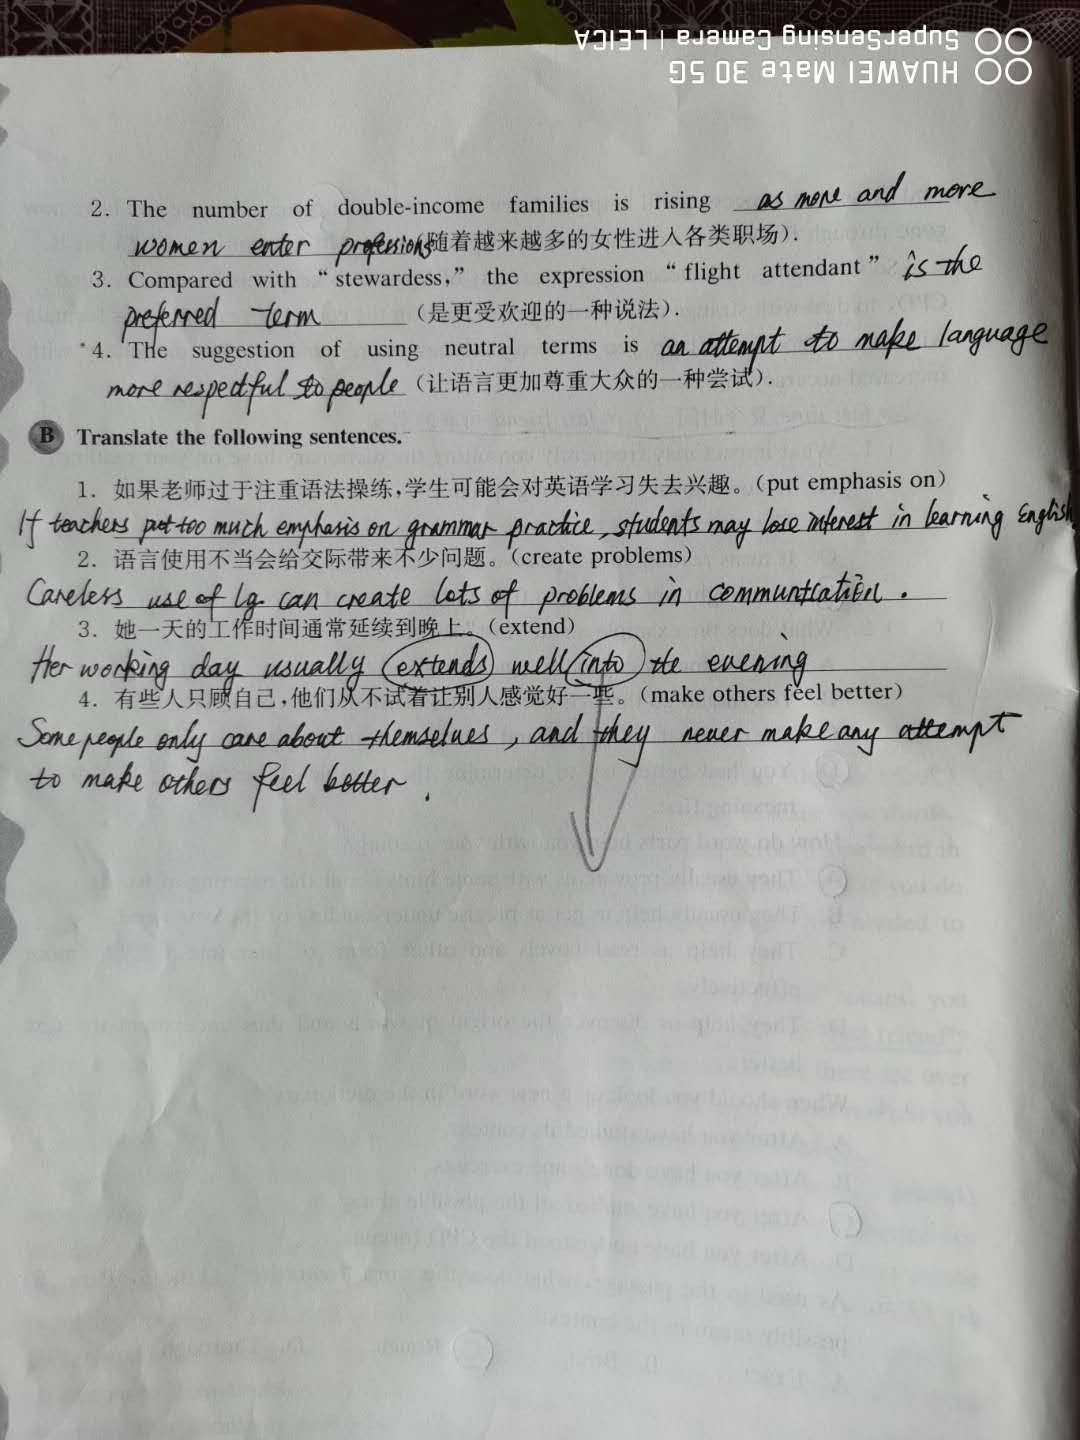 HUAWEI Mate 30 5G
SuperSensing Camera | LEICA
2. The number of double-income families is rising as more and more
women enter professions(随着越来越多的女性进入各类职场).
3. Compared with “stewardess,” the expression “flight attendant” is the
preferred term (是更受欢迎的一种说法).
*4. The suggestion of using neutral terms is an attempt to make language
more respectful to people (让语言更加尊重大众的一种尝试).
B Translate the following sentences.
1. 如果老师过于注重语法操练,学生可能会对英语学习失去兴趣。(put emphasis on)
If teachers put too much emphasis on grammar practice, students may lose interest in learning English
2. 语言使用不当会给交际带来不少问题。(create problems)
Careless use of lg. can create lots of problems in communication.
3. 她一天的工作时间通常延续到晚上。(extend)
Her working day usually extends well into the evening
4. 有些人只顾自己,他们从不试着让别人感觉好一些。(make others feel better)
Some people only care about themselves, and they never make any attempt
to make others feel better.